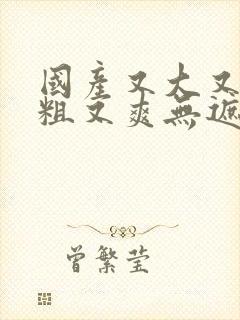 國產又大又
粗又爽無遮
曾繁莹